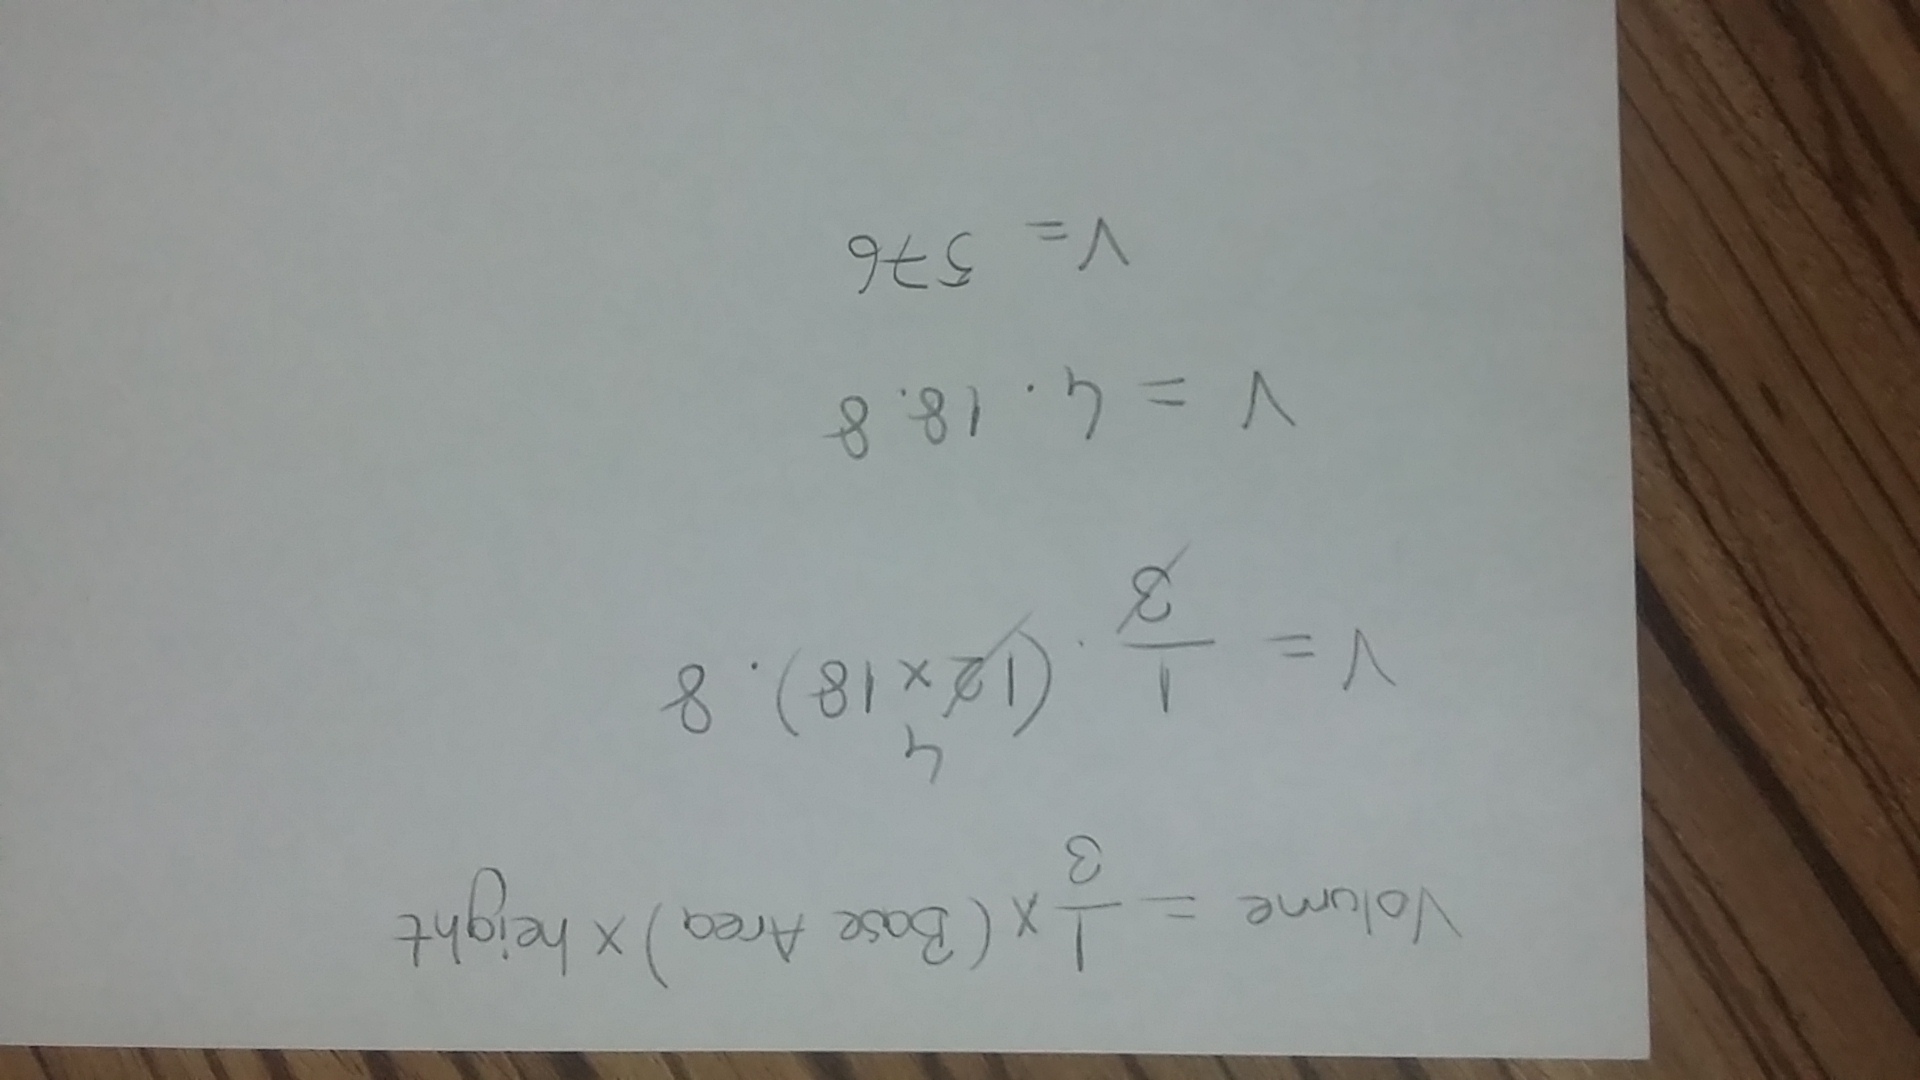 Volume = 1/3 x (Base Area) x height
4
V = 1/3 · (12 x 18) · 8
V = 4 · 18 · 8
V = 576